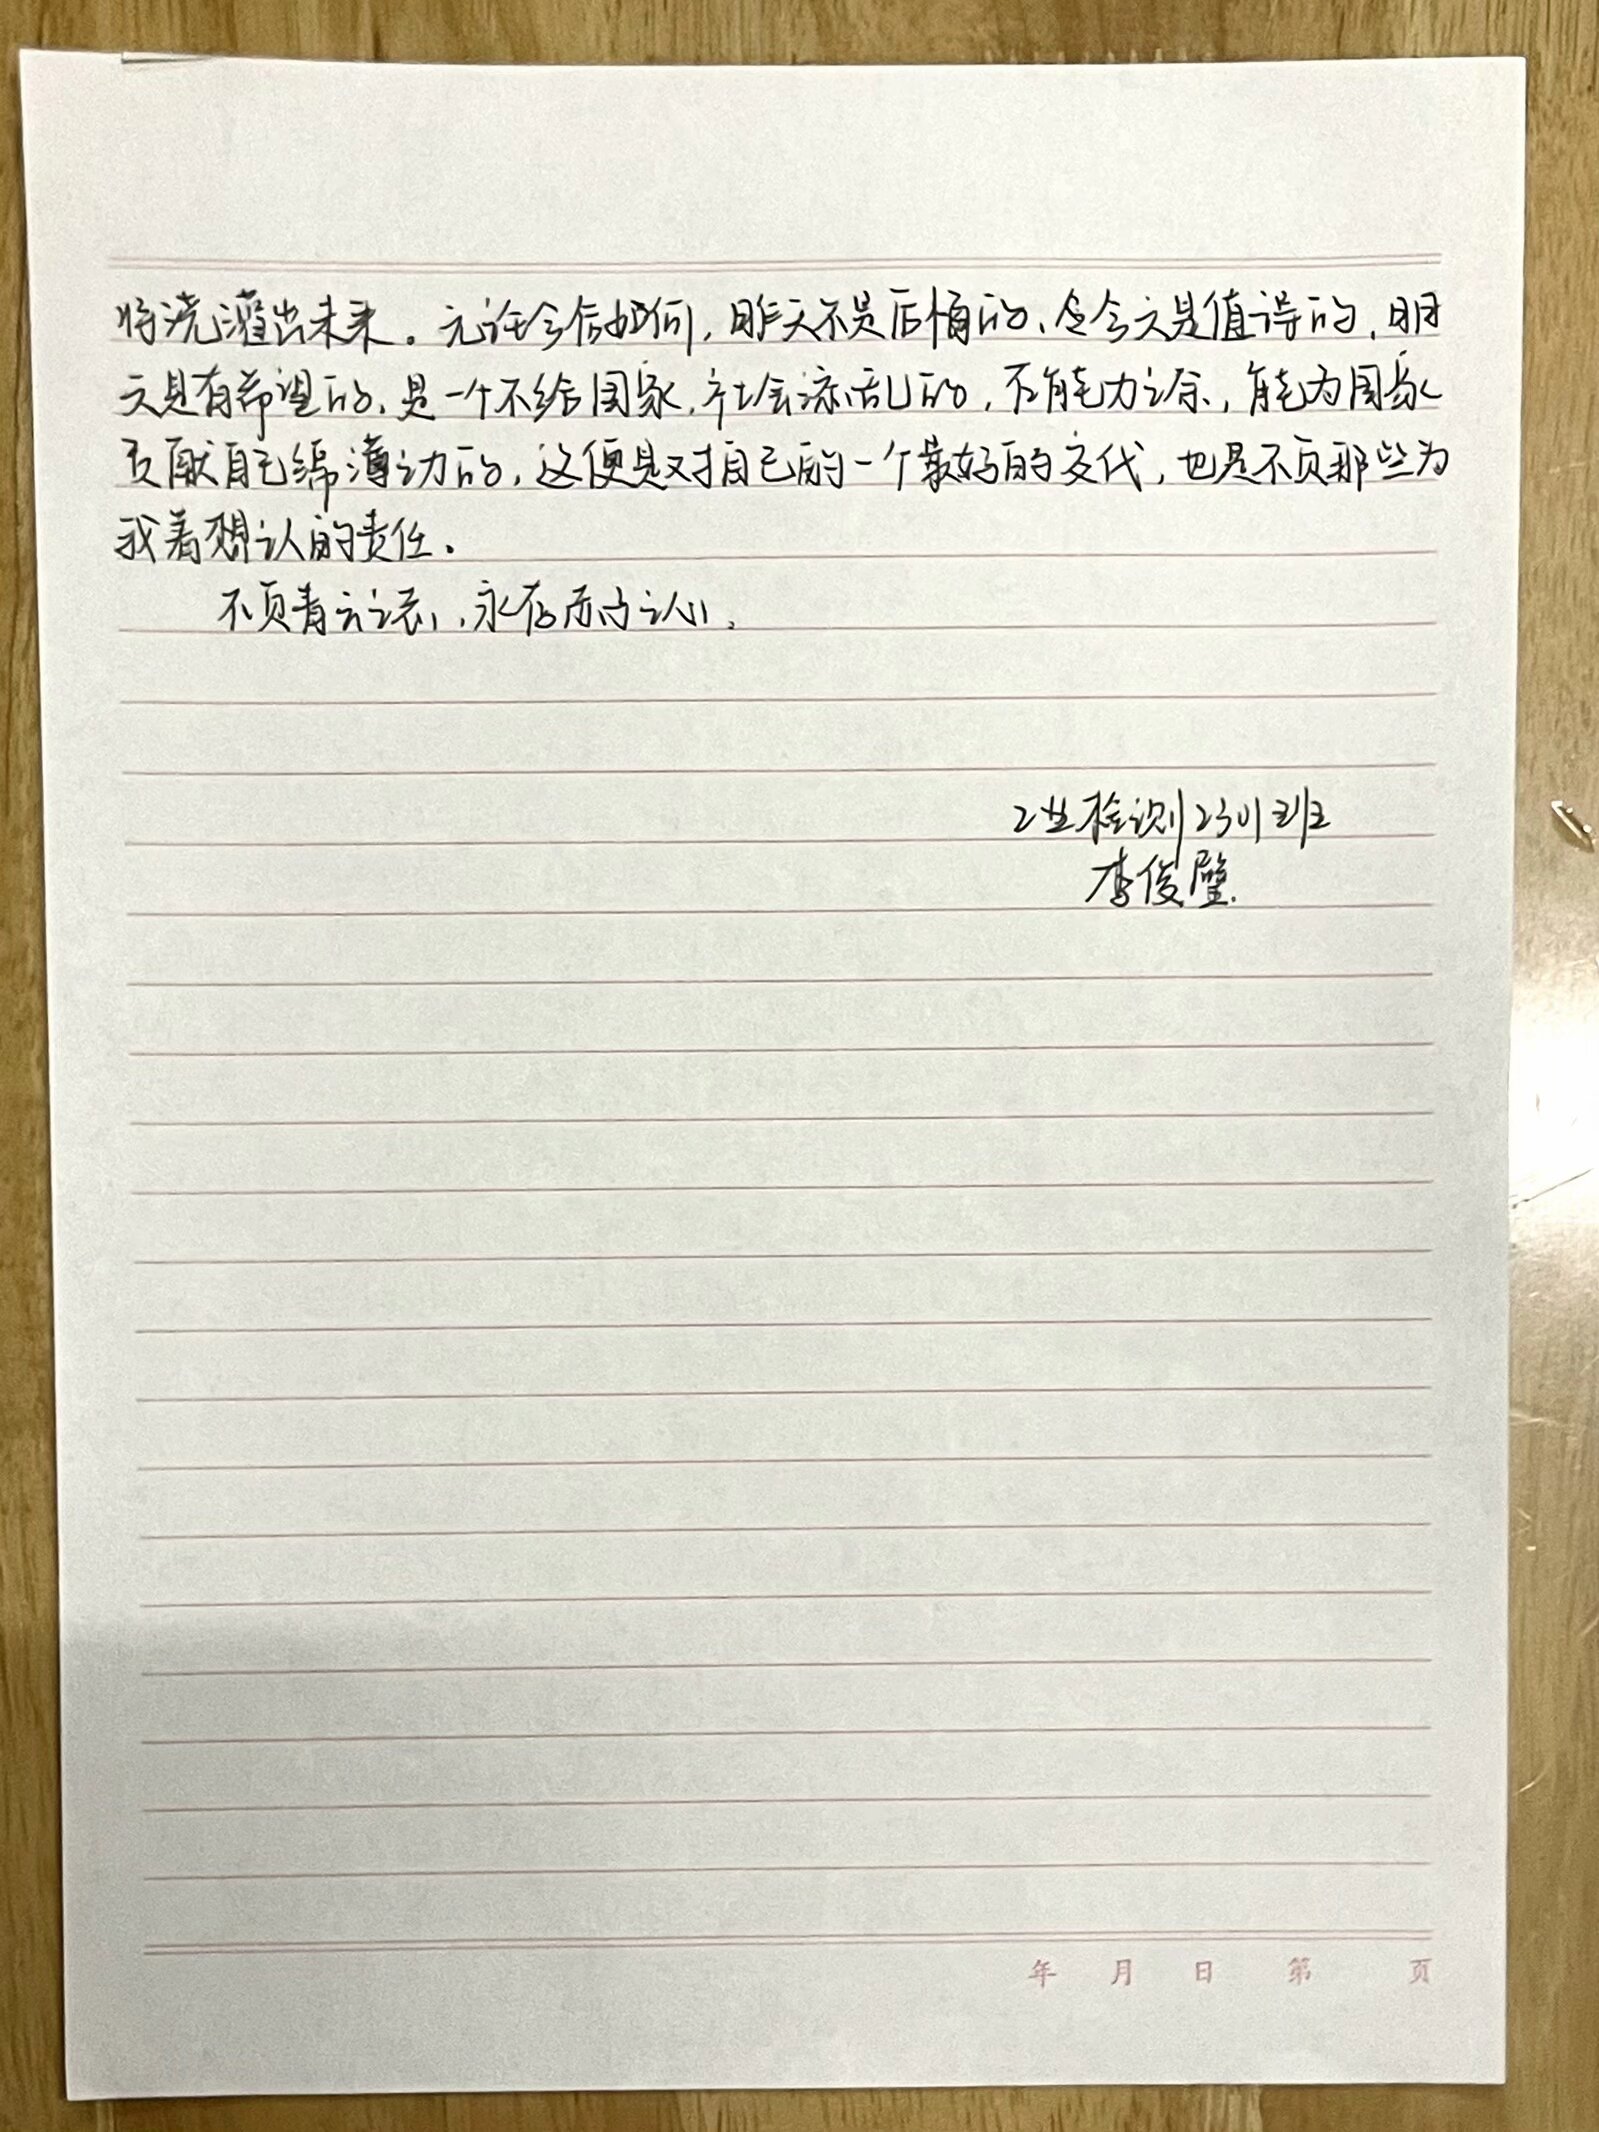 将浇灌出未来。无论今后如何,昨天不是后悔的、今天是值得的,明
天是有希望的,是一个不给国家,社会添乱的,在能力之余,能为国家
贡献自己绵薄之力的,这便是对自己的一个最好的交代,也是不负那些为
我着想人的责任。
不负青云之志,永存历
工业检测2301班
李俊璧
年 月 日 第 页